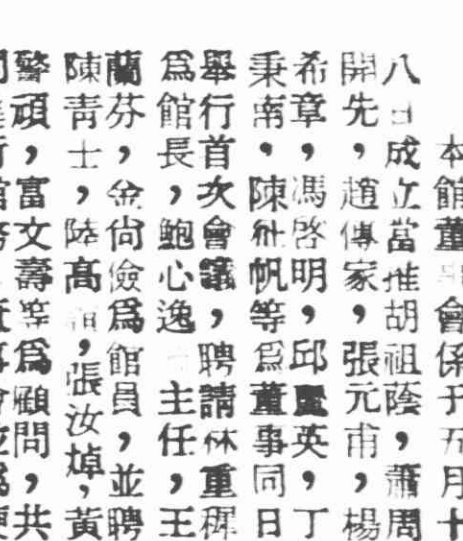 本館董事會係于五月十
八日成立當推胡祖蔭，蕭周
開先，趙傳家，張元甫，楊
希章，馮啓明，邱麗英，丁
秉南，陳 帆等爲董事同日
舉行首次會議，聘請林重穉
爲館長，鮑心逸 主任，王
蘭芬，金尙儉爲館員，並聘
陳靑士，陸高 ，張汝焯，黃
警頑，富文壽等爲顧問，共